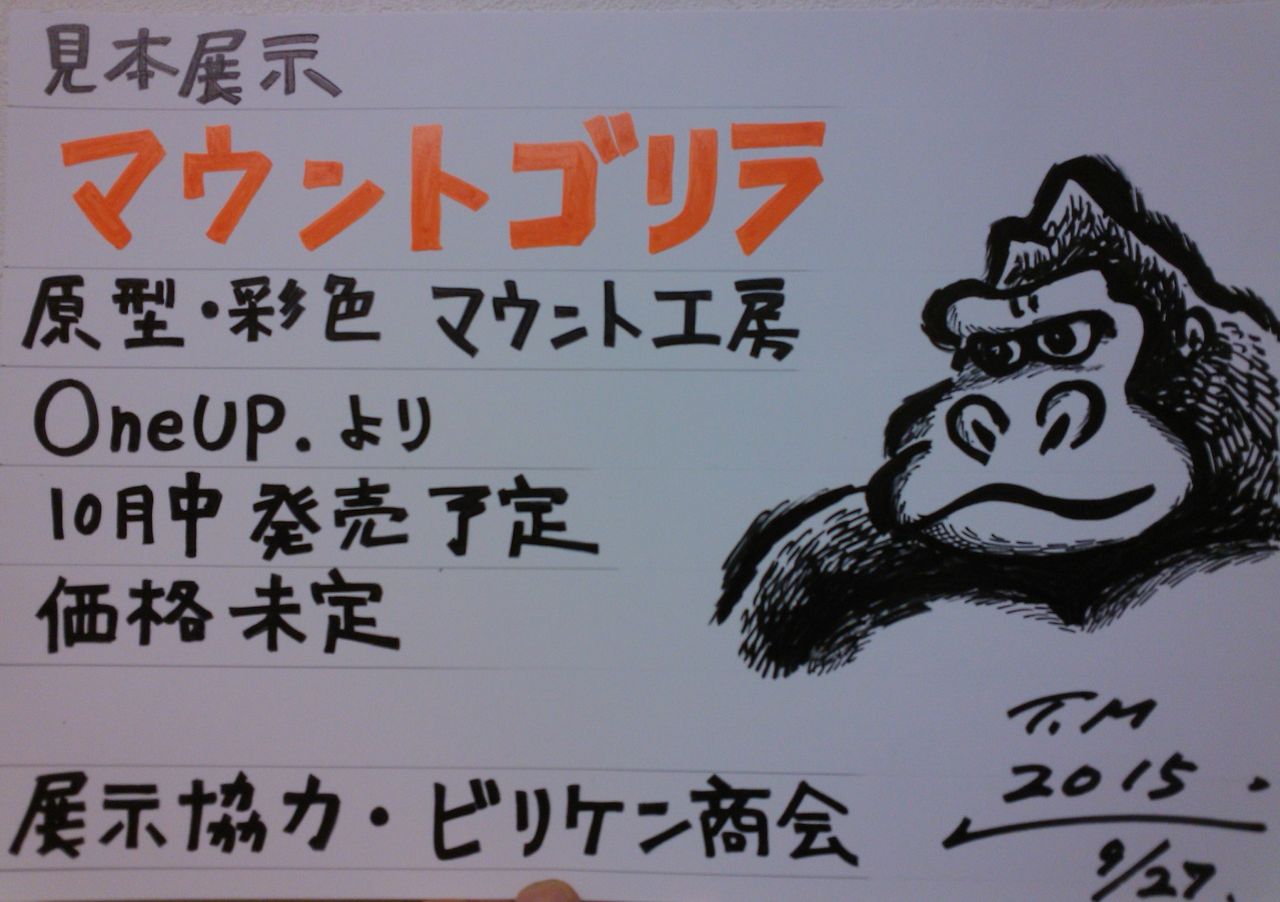 見本展示
マウントゴリラ
原型・彩色 マウント工房
OneUP.より
10月中 発売予定
価格未定
展示協力・ビリケン商会
T.M
2015.
9/27.